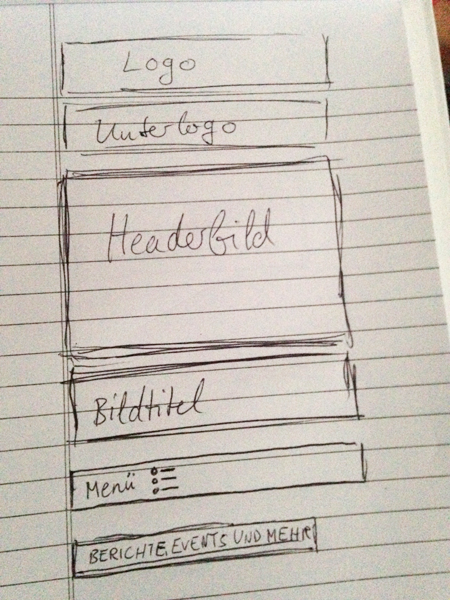 Logo
Unterlogo
Headerbild
Bildtitel
Menü
BERICHTE, EVENTS UND MEHR